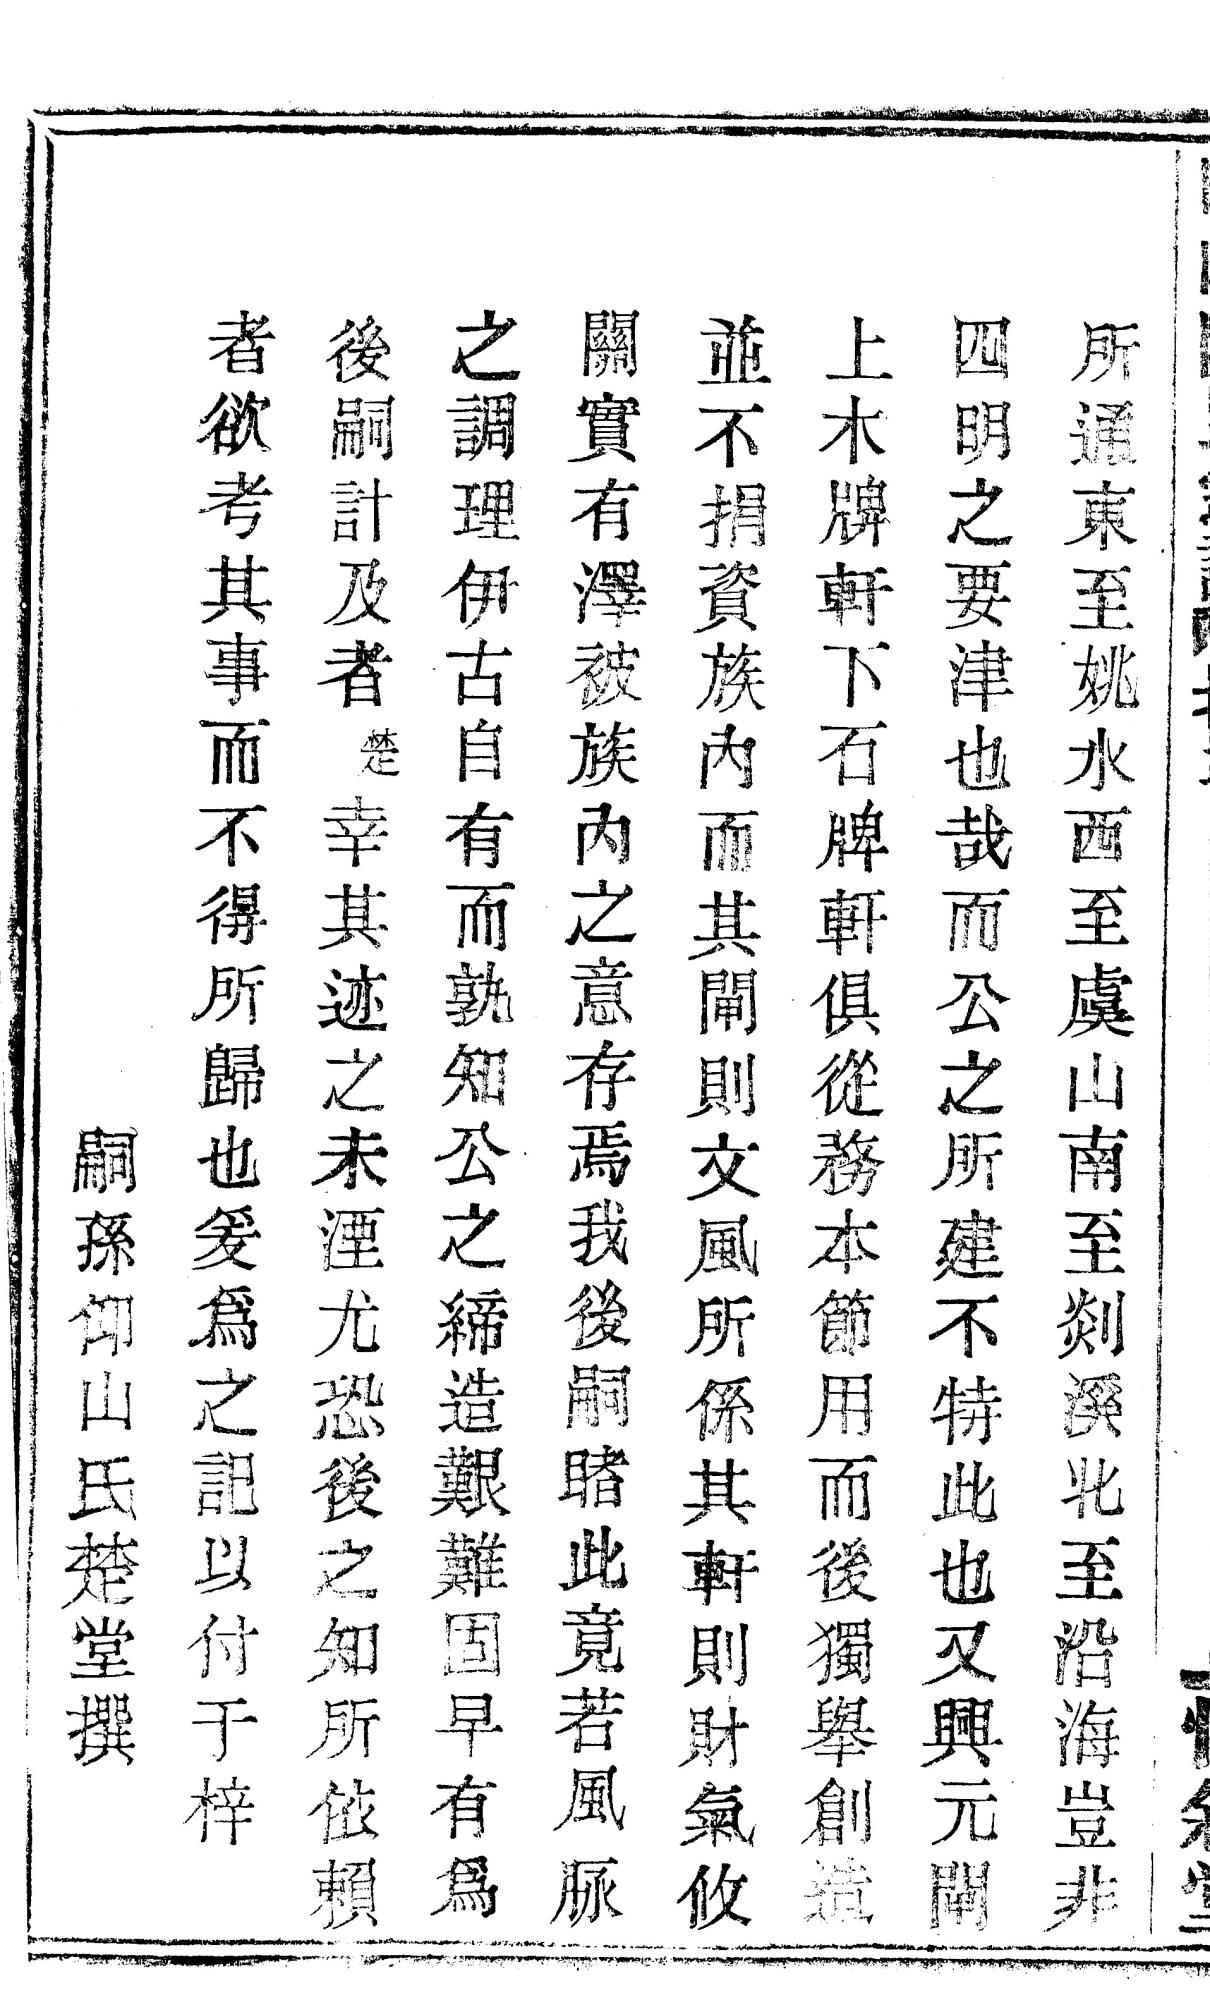 所通東至姚水西至虞山南至剡溪北至沿海豈非
四明之要津也哉而公之所建不特此也又興元閘
上木牌軒下石牌軒俱從務本節用而後獨舉創造
並不捐資族內而其閘則文風所係其軒則財氣攸
關實有澤被族內之意存焉我後嗣睹此竟若風脈
之調理伊古自有而孰知公之締造艱難固早有為
後嗣計及者楚幸其迹之未湮尤恐後之知所依賴
者欲考其事而不得所歸也爰為之記以付于梓
嗣孫仰山氏楚堂撰